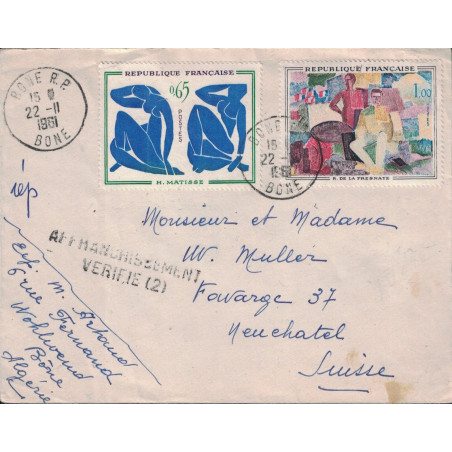 BONE R.P.
15 H
22-11
1961
BONE
REPUBLIQUE FRANÇAISE
0,65
POSTES
H. MATISSE
REPUBLIQUE FRANÇAISE
1,00
POSTES
R. DE LA FRESNAYE
BONE
15
22-
1961
BONE
rép
AFFRANCHISSEMENT
VERIFIE (2)
Monsieur et Madame
W. Muller
Favarge 37
Neuchatel
Suisse
Exp. M. Arhand
6 rue Fernand
Wohlwend
Bône
Algérie